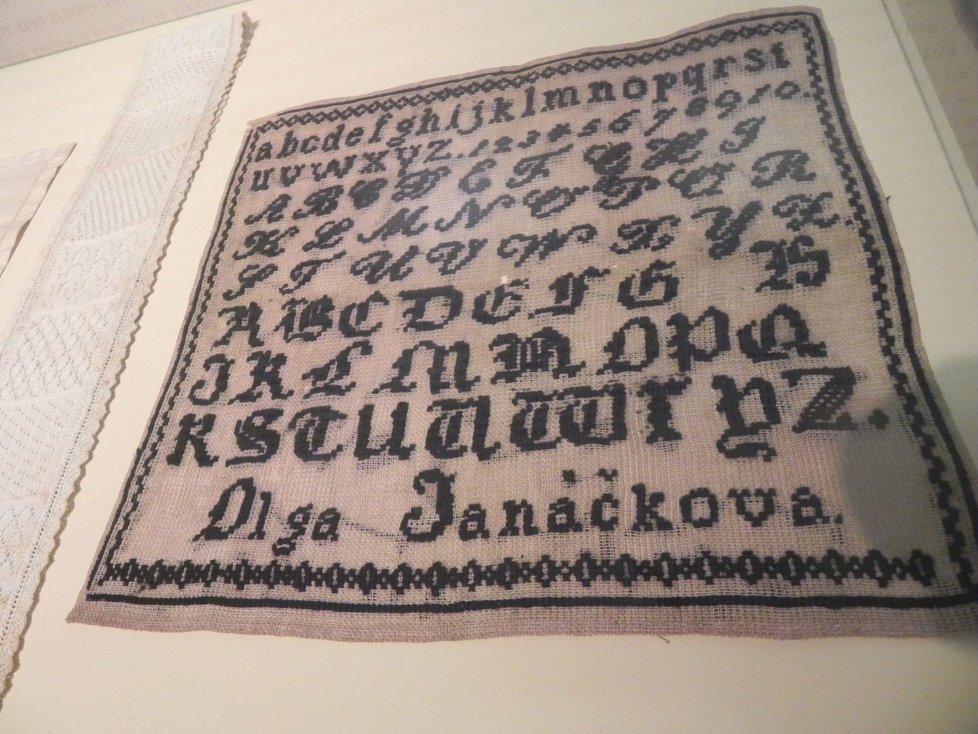 abcdefghijklmnopqrst
uvwxyz 1 2 3 4 5 6 7 8 9 10.
A B C D E F G H J
K L M N O P Q R
S T U V W X Y Z
A B C D E F G H
J K L M N O P Q
R S T U V W X Y Z.
Olga Janáčkova.